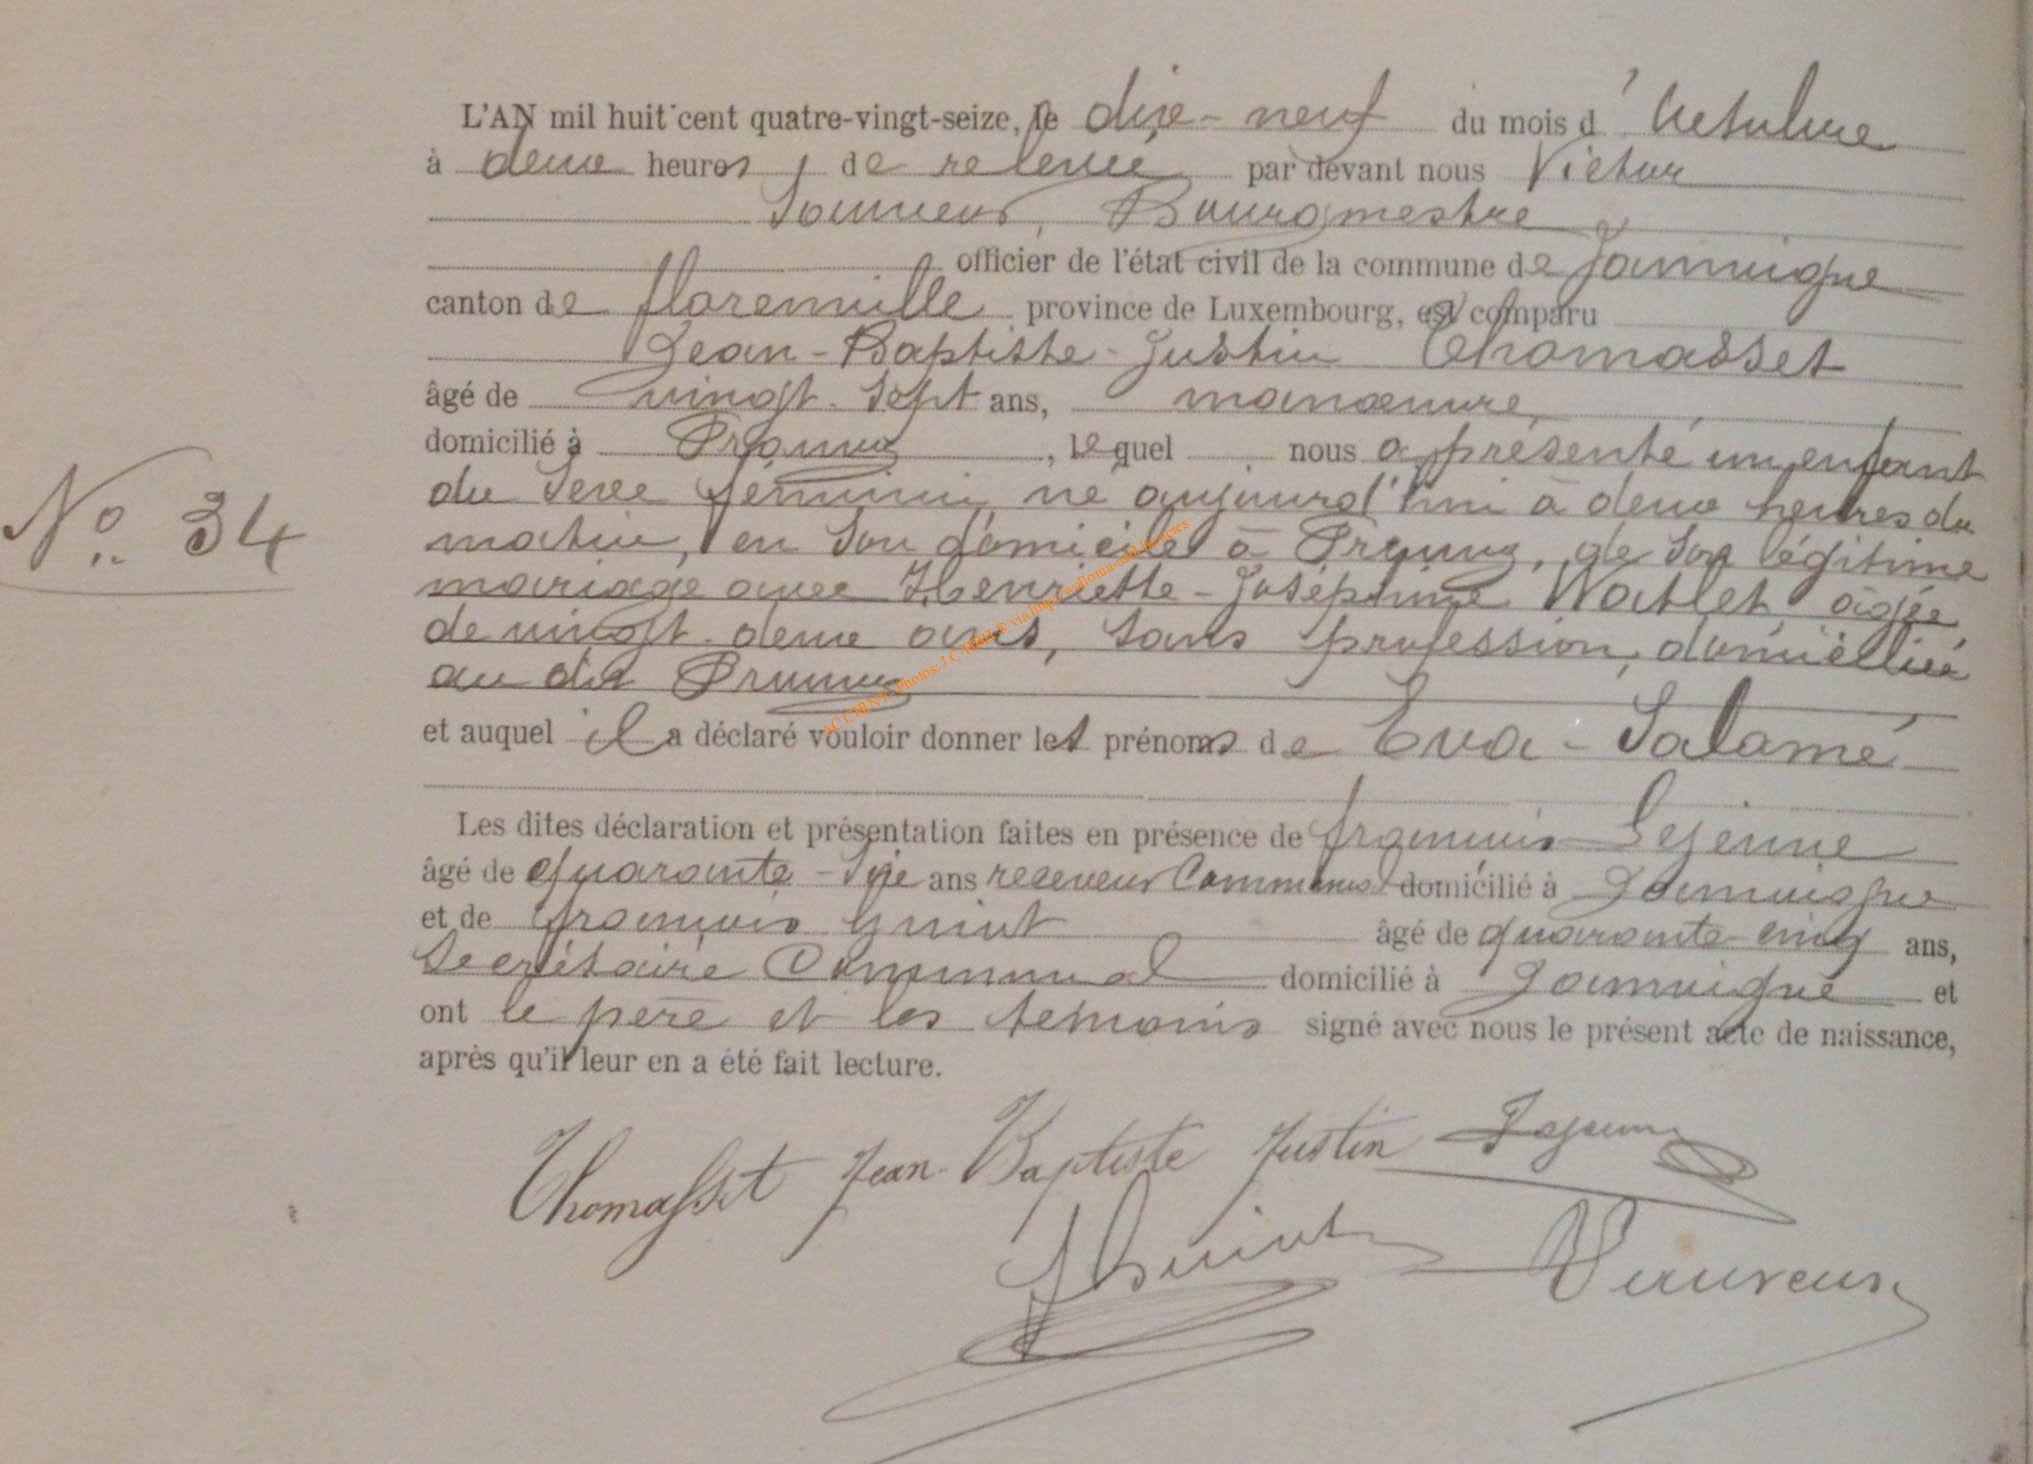 L'AN mil huit cent quatre-vingt-seize, le dix-neuf du mois d'Octobre
à deux heures de relevée par devant nous Victor
Bourgmestre
officier de l'état civil de la commune de Jamoigne
canton de florenville province de Luxembourg, est comparu
Jean-Baptiste-Justin Thomasset
âgé de vingt-sept ans, manœuvre
domicilié à Prouvy, lequel nous a présenté un enfant
du sexe féminin, né aujourd'hui à deux heures du
N° 34
matin, en son domicile à Prouvy, de son légitime
mariage avec Henriette-Joséphine Watlet, âgée
de vingt-deux ans, sans profession, domiciliée
au dit Prouvy
et auquel il a déclaré vouloir donner les prénoms de Eva-Salomé
Les dites déclaration et présentation faites en présence de françois Lejeune
âgé de quarante-six ans receveur Communal domicilié à Jamoigne
et de françois Guiot âgé de quarante cinq ans,
Secrétaire Communal domicilié à Jamoigne et
ont le père et les témoins signé avec nous le présent acte de naissance,
après qu'il leur en a été fait lecture.
Thomasset Jean-Baptiste Justin Lejeune
f Guiot
AC CHINY - Photos: J.C. ® via http://wallonia-asbl.be/actes